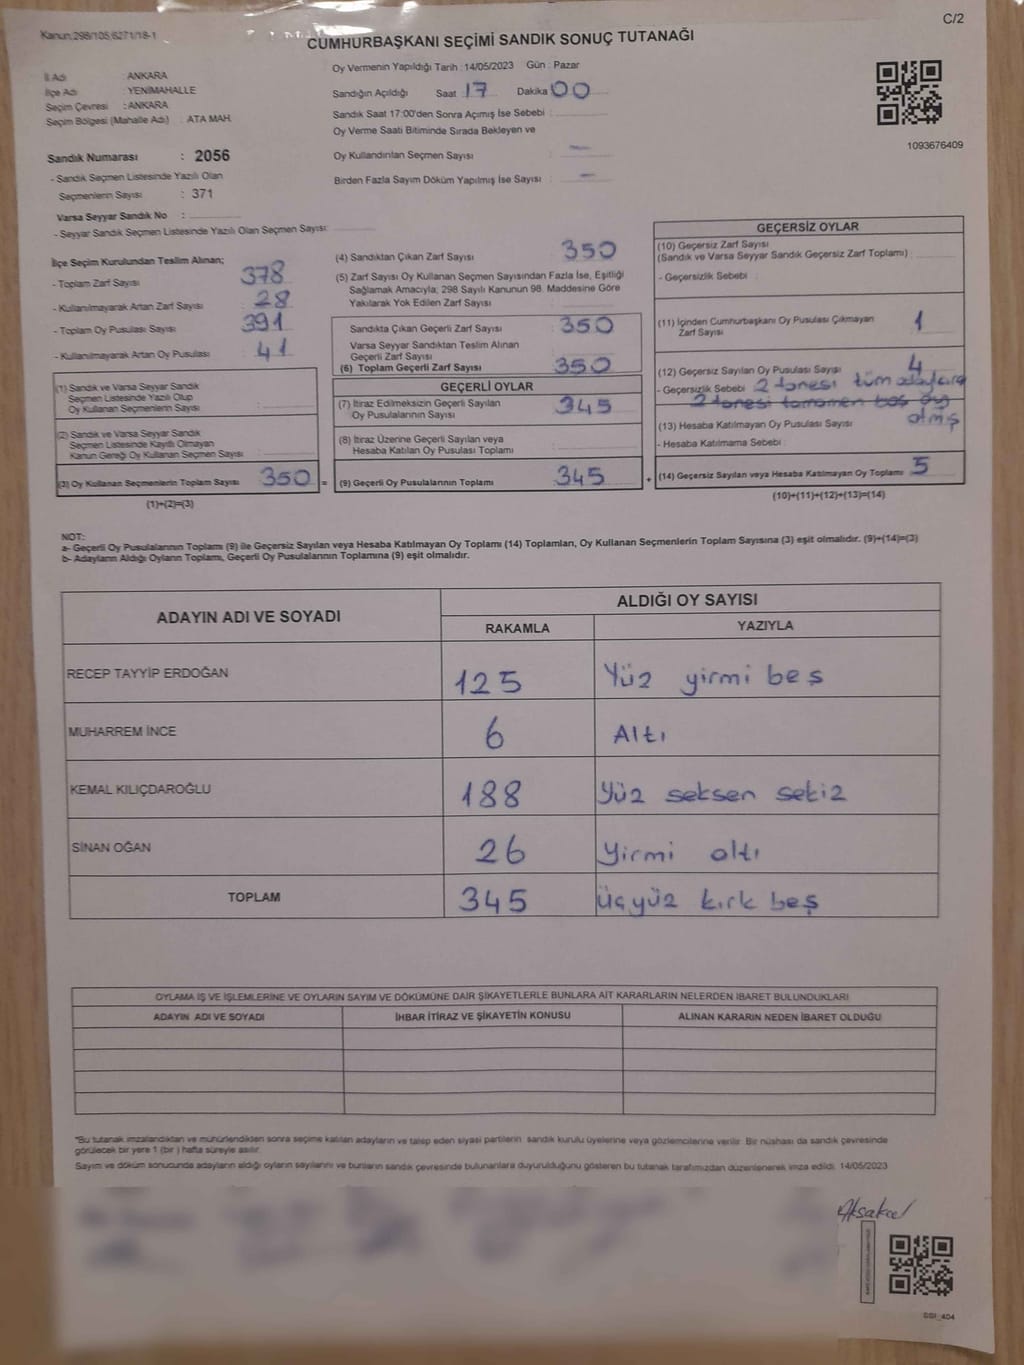 C/2
Kanun:298/105;6271/18-1
CUMHURBAŞKANI SEÇİMİ SANDIK SONUÇ TUTANAĞI
İl Adı : ANKARA
İlçe Adı : YENİMAHALLE
Seçim Çevresi : ANKARA
Seçim Bölgesi (Mahalle Adı) : ATA MAH.
Oy Vermenin Yapıldığı Tarih : 14/05/2023 Gün : Pazar
Sandığın Açıldığı Saat 17 Dakika 00
Sandık Saat 17:00'den Sonra Açımış İse Sebebi :
Oy Verme Saati Bitiminde Sırada Bekleyen ve
Oy Kullandırılan Seçmen Sayısı : —
Birden Fazla Sayım Döküm Yapılmış İse Sayısı : —
1093676409
Sandık Numarası : 2056
- Sandık Seçmen Listesinde Yazılı Olan
Seçmenlerin Sayısı : 371
Varsa Seyyar Sandık No :
- Seyyar Sandık Seçmen Listesinde Yazılı Olan Seçmen Sayısı:
İlçe Seçim Kurulundan Teslim Alınan;
- Toplam Zarf Sayısı 378
- Kullanılmayarak Artan Zarf Sayısı : 28
- Toplam Oy Pusulası Sayısı : 391
- Kullanılmayarak Artan Oy Pusulası : 41
(1) Sandık ve Varsa Seyyar Sandık
Seçmen Listesinde Yazılı Olup
Oy Kullanan Seçmenlerin Sayısı :
(2) Sandık ve Varsa Seyyar Sandık
Seçmen Listesinde Kayıtlı Olmayan
Kanun Gereği Oy Kullanan Seçmen Sayısı :
(3) Oy Kullanan Seçmenlerin Toplam Sayısı 350 =
(1)+(2)=(3)
(4) Sandıktan Çıkan Zarf Sayısı : 350
(5) Zarf Sayısı Oy Kullanan Seçmen Sayısından Fazla İse, Eşitliği
Sağlamak Amacıyla; 298 Sayılı Kanunun 98. Maddesine Göre
Yakılarak Yok Edilen Zarf Sayısı :
Sandıkta Çıkan Geçerli Zarf Sayısı : 350
Varsa Seyyar Sandıktan Teslim Alınan
Geçerli Zarf Sayısı :
(6) Toplam Geçerli Zarf Sayısı : 350
GEÇERLİ OYLAR
(7) İtiraz Edilmeksizin Geçerli Sayılan
Oy Pusulalarının Sayısı : 345
(8) İtiraz Üzerine Geçerli Sayılan veya
Hesaba Katılan Oy Pusulası Toplamı :
(9) Geçerli Oy Pusulalarının Toplamı : 345 +
GEÇERSİZ OYLAR
(10) Geçersiz Zarf Sayısı
(Sandık ve Varsa Seyyar Sandık Geçersiz Zarf Toplamı) :
- Geçersizlik Sebebi :
(11) İçinden Cumhurbaşkanı Oy Pusulası Çıkmayan
Zarf Sayısı : 1
(12) Geçersiz Sayılan Oy Pusulası Sayısı : 4
- Geçersizlik Sebebi : 2 tanesi tüm adaylara
2 tanesi tamamen boş oy
olmiş
(13) Hesaba Katılmayan Oy Pusulası Sayısı :
- Hesaba Katılmama Sebebi :
(14) Geçersiz Sayılan veya Hesaba Katılmayan Oy Toplamı : 5
(10)+(11)+(12)+(13)=(14)
NOT:
a- Geçerli Oy Pusulalarının Toplamı (9) ile Geçersiz Sayılan veya Hesaba Katılmayan Oy Toplamı (14) Toplamları, Oy Kullanan Seçmenlerin Toplam Sayısına (3) eşit olmalıdır. (9)+(14)=(3)
b- Adayların Aldığı Oyların Toplamı, Geçerli Oy Pusulalarının Toplamına (9) eşit olmalıdır.
ADAYIN ADI VE SOYADI
ALDIĞI OY SAYISI
RAKAMLA YAZIYLA
RECEP TAYYİP ERDOĞAN 125 Yüz yirmi beş
MUHARREM İNCE 6 Altı
KEMAL KILIÇDAROĞLU 188 Yüz seksen sekiz
SİNAN OĞAN 26 Yirmi altı
TOPLAM 345 üçyüz kırk beş
OYLAMA İŞ VE İŞLEMLERİNE VE OYLARIN SAYIM VE DÖKÜMÜNE DAİR ŞİKAYETLERLE BUNLARA AİT KARARLARIN NELERDEN İBARET BULUNDUKLARI
ADAYIN ADI VE SOYADI İHBAR İTİRAZ VE ŞİKAYETİN KONUSU ALINAN KARARIN NEDEN İBARET OLDUĞU
*Bu tutanak imzalandıktan ve mühürlendikten sonra seçime katılan adayların ve talep eden siyasi partilerin sandık kurulu üyelerine veya gözlemcilerine verilir. Bir nüshası da sandık çevresinde
görülecek bir yere 1 (bir) hafta süreyle asılır.
Sayım ve döküm sonucunda adayların aldığı oyların sayılarını ve bunların sandık çevresinde bulunanlara duyurulduğunu gösteren bu tutanak tarafımızdan düzenlenerek imza edildi. 14/05/2023